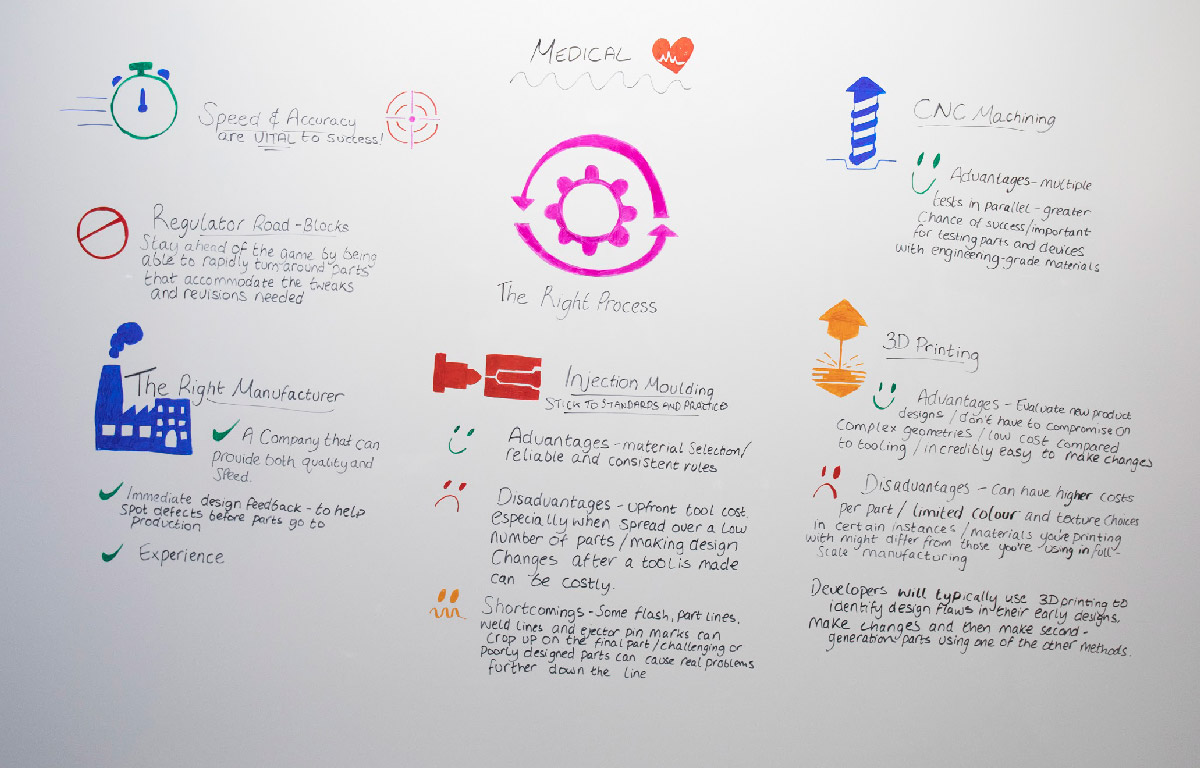 MEDICAL
Speed & Accuracy
are VITAL to success!
Regulator Road-Blocks
Stay ahead of the game by being
able to rapidly turn around parts
that accommodate the tweaks
and revisions needed
The Right Manufacturer
A Company that can
provide both quality and
speed.
Immediate design feedback - to help
spot defects before parts go to
production
Experience
The Right Process
Injection Moulding
STICK TO STANDARDS AND PRACTICE
Advantages - material Selection/
reliable and consistent rules
Disadvantages - upfront tool cost,
especially when spread over a low
number of parts/making design
Changes after a tool is made
can be costly.
Shortcomings - Some flash, part lines,
weld lines and ejector pin marks can
Crop up on the final part/challenging or
poorly designed parts can cause real problems
further down the line
CNC Machining
Advantages - multiple
tests in parallel - greater
Chance of success/important
for testing parts and devices
with engineering-grade materials
3D Printing
Advantages - Evaluate new product
designs / don't have to compromise on
complex geometries / low cost compared
to tooling / incredibly easy to make changes
Disadvantages - Can have higher costs
per part / limited colour and texture Choices
in certain instances / materials you're printing
with might differ from those you're using in full-
Scale manufacturing
Developers will typically use 3D printing to
identify design flaws in their early designs,
make changes and then make second-
generation parts using one of the other methods.